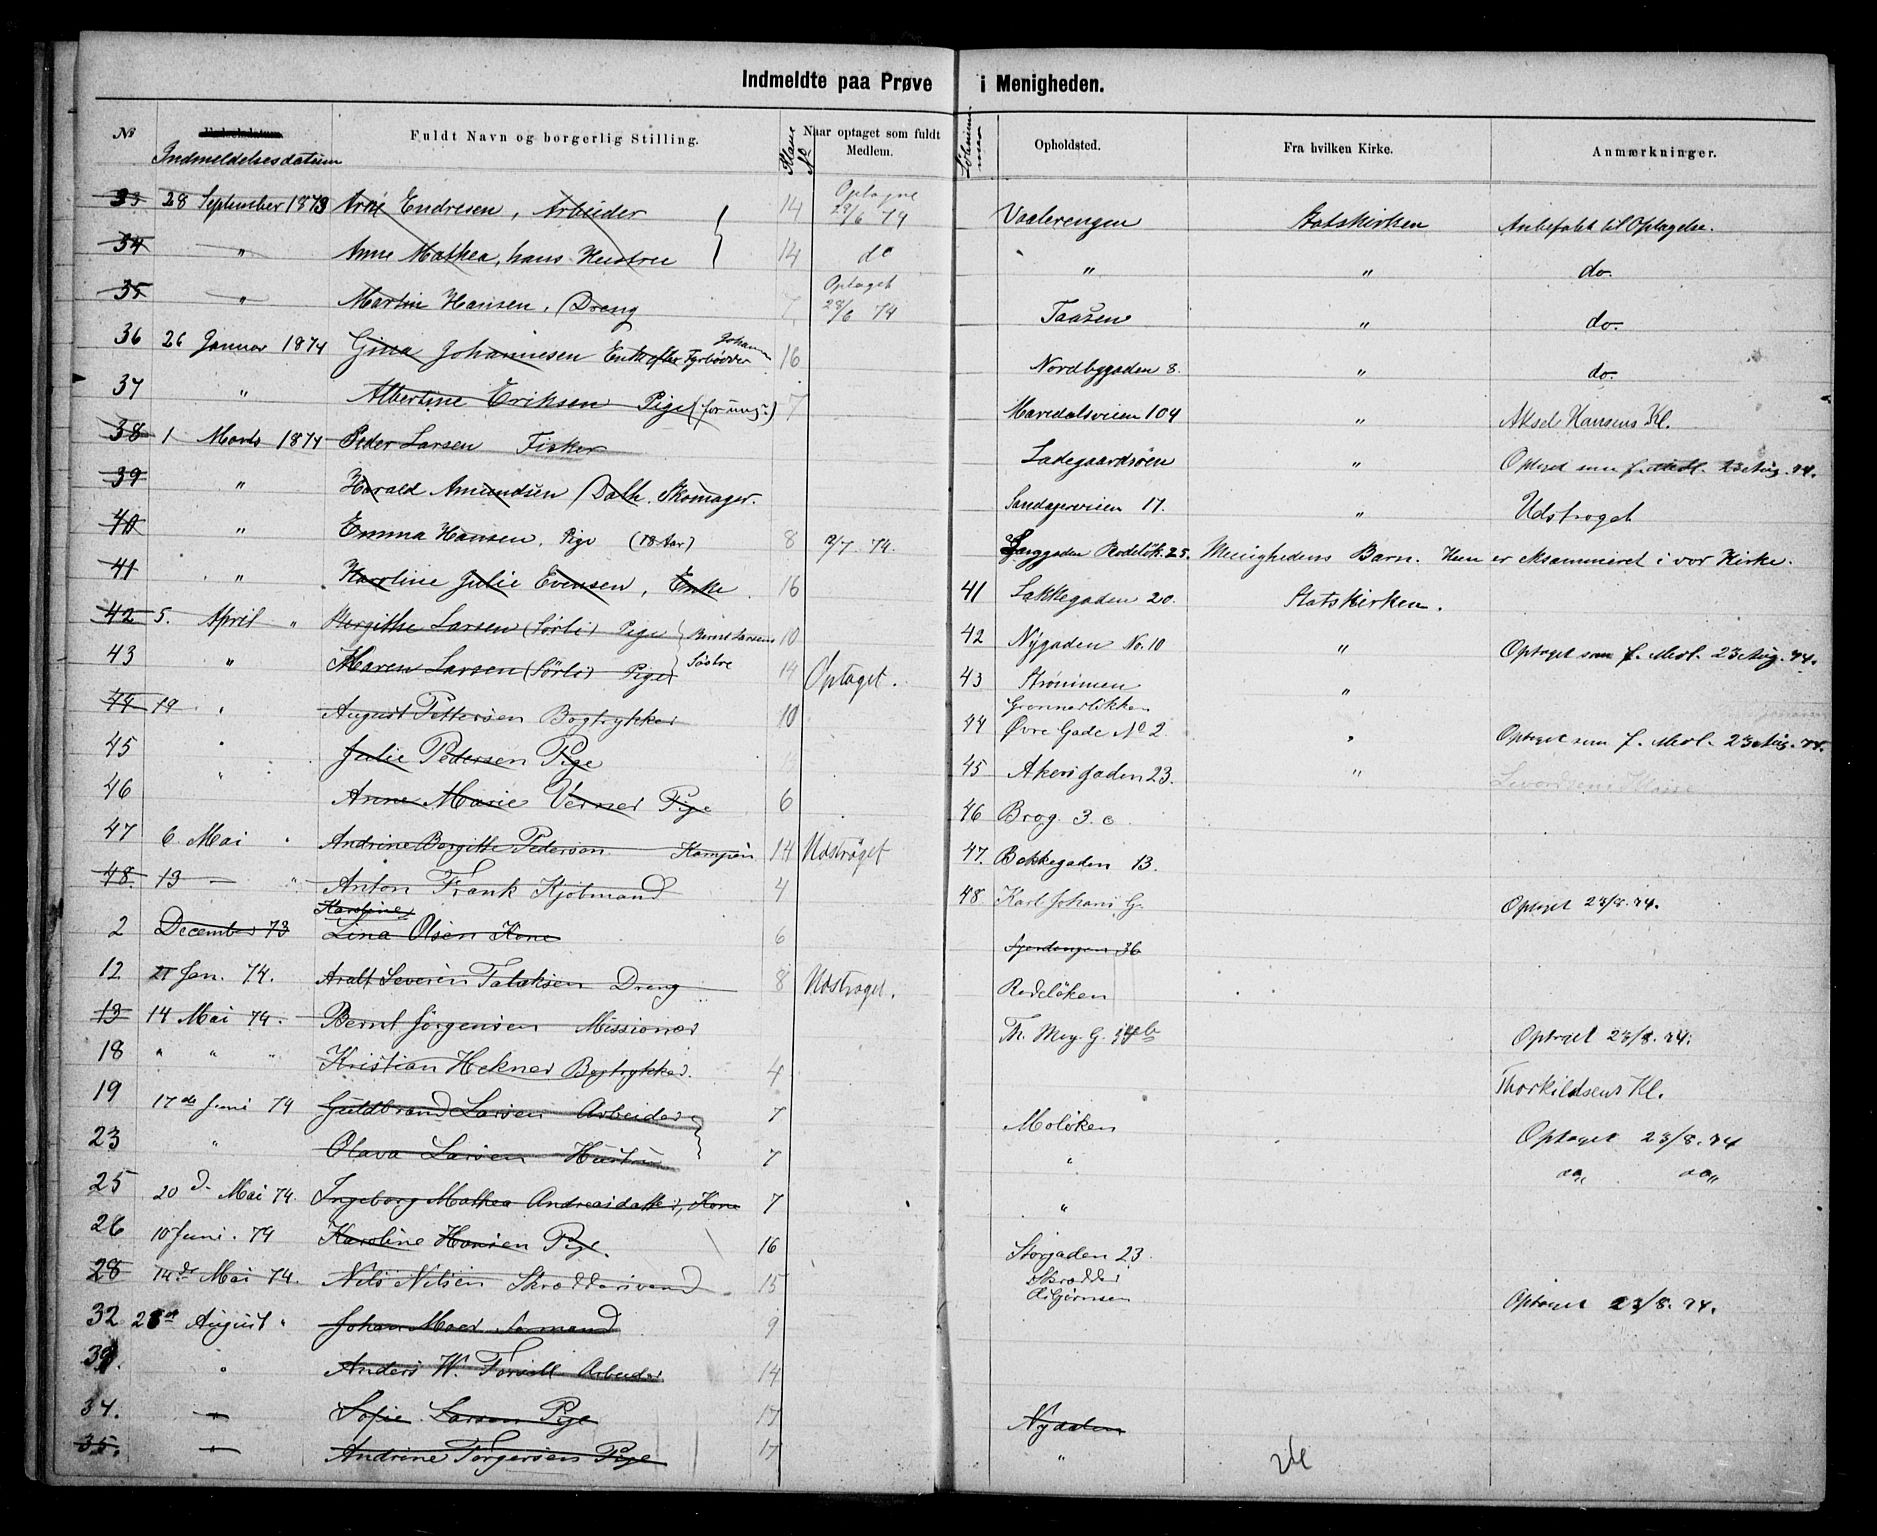 Indmeldte paa Prøve i Menigheden.
No Indmeldelsesdatum Fuldt Navn og borgerlig Stilling. Klasse No Naar optaget som fuldt Medlem. Opholdsted. Fra hvilken Kirke. Anmærkninger.
33. 28 September 1873 Arne Endresen, Arbeider 14 Optagne 28/6 74 Vaalerengen Statskirken Anbefalet til Optagelse.
34 " Anne Mathea, hans Hustru 14 do " " do.
35 " Martin Hansen, Dreng 7. Optaget 28/6 74 Taasen " do.
36 26 Januar 1874 Gina Johannesen Enke efter Fyrbøder Johann 16 Nordbygaden 8. " do.
37 " Albertine Eriksen Pige (for ung) 7 Maridalsveien 104 " Aksel Hansens Kl.
38 1 Marts 1874 Peder Larsen Fisker Ladegaardsøen " Optaget som f. Medl. 23 Aug. 74.
39 " Harald Amundsen Dalh. Skomager. Sandagerveien 17. " Udstrøget
40 " Emma Hansen, Pige (18 Aar) 8 2/7. 74. Langgaden Rodeløk. 25. Menighedens Barn. Hun er eksamineret i vor Kirke.
41 " Karoline Julie Evensen, Enke. 16 41 Lakkegaden 20. Statskirken.
42 5. April " Bergithe Larsen (Sørli) Pige } Bernt Larsens 10 42 Nygaden No. 10 " Optaget som f. Medl. 23 Aug. 74.
43 " Maren Larsen (Sørli) Pige } Søstre 14 Optaget. 43 Strømmen "
44 19 " August Pettersen Bogtrykker 10 44 Grønnerløkken Øvre Gade No 2. " Optaget som f. Medl. 23 Aug. 74.
45 " Julie Pedersen Pige 45 Akersgaden 23. "
46 " Anne Marie Verner Pige 6 46 Brog. 3. c
47 6. Mai " Andrine Borgitte Pederson Kampen 14 Udstrøget 47. Bakkegaden 13.
48. 13 — " Anton Frank Kjøbmand 4 48 Karl Johans G. Optaget 23/8. 74.
2 December 73 Karoline Lina Olsen Kone 6 36
12 21 Jan. 74. Aralt Severin Talaksen Dreng 8 Udstrøget. Rodeløken
13 14 Mai 74. Bernt Jørgensen Missionær Th. Mey. G. 14b Optaget 23/8. 74.
18 " " " Kristian Hekner Bogtrykker. 4 Thorkildsens Kl.
19 17de Juni 74 Guldbrand Larsen Arbeider } 7 Moløken Optaget 23/8. 74
23 " Olava Larsen Hustru } 7 " do do
25 20 d. Mai 74. Ingeborg Mathea Andreasdatter, Kone 7 "
26 10 Juni. 74 Karoline Hansen Pige. 16 Storgaden 23.
28 14de Mai 74. Nils Nilsen Skræddersvend 15 Skrædder Asbjørnsen Optaget 23/8. 74.
32 28de August " Johan Moer Sømand 9
33. " Anders W. Arbeider 14
34. " Sofie Larsen Pige 17 Nydalen
35. " Andrine Torgersen Pige 17 "